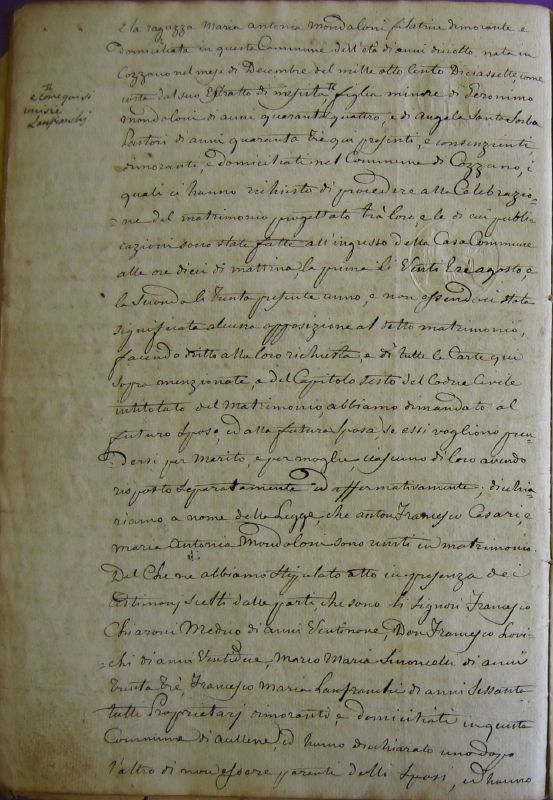 E la ragazza Maria Antonia Mondaloni filatrice dimorante e
domiciliata in questa Commune dell'età di anni dieciotto, nata in
Cozzano nel mese di Decembre del mille otto Cento Diciassette, come
costa dal suo Estratto di figlia minore di Geronimo
Mondaloni di anni quaranta quattro, e di Angela Santa Sorba
Pastori di anni quaranta trè qui presenti, e consenzienti,
dimoranti, e domiciliati nel Commune di Cozzano, i
quali ci hanno richiesto di procedere alla Celebrazio=
=ne del matrimonio progettato trà loro, e le di cui pubbli
cazioni sono state fatte all'ingresso della Casa Commune
alle ore dieci di mattina, la prima li Venti trè agosto, e
la Seconda li trenta presente anno, e non essendoci state
significate alcuna opposizione al detto matrimonio,
facendo dritto alla loro richiesta, e di tutte le Carte qui
sopra menzionate, e del Capitolo sesto del Codice Civile
intitolato del Matrimonio abbiamo dimandato al
futuro Sposo, ed alla futura Sposa, se essi vogliono pren=
=dersi per Marito, e per moglie, ciascuno di loro avendo
risposto Separatamente ed affermativamente, dichia
riamo a nome della Legge, che anton Francesco Cesari e
Maria Antonia Mondaloni sono uniti in matrimonio.
Del Che ne abbiamo Stipulato atto in presenza dei
testimonj scelti dalle parti, che sono li Signori Francesco
Chiaroni Medico di anni Ventinove, Don Francesco Lovi=
=chi di anni Ventidue, Marco Maria Simoncelli di anni
trenta trè, Francesco Maria Lanfranchi di anni Sessanta
tutti Proprietarj dimoranti, e domiciliati in questa
Commune di aullene, ed hanno dichiarato uno dopo
l'altro di non essere parenti delli Sposi, ed hanno
Lanfranchi